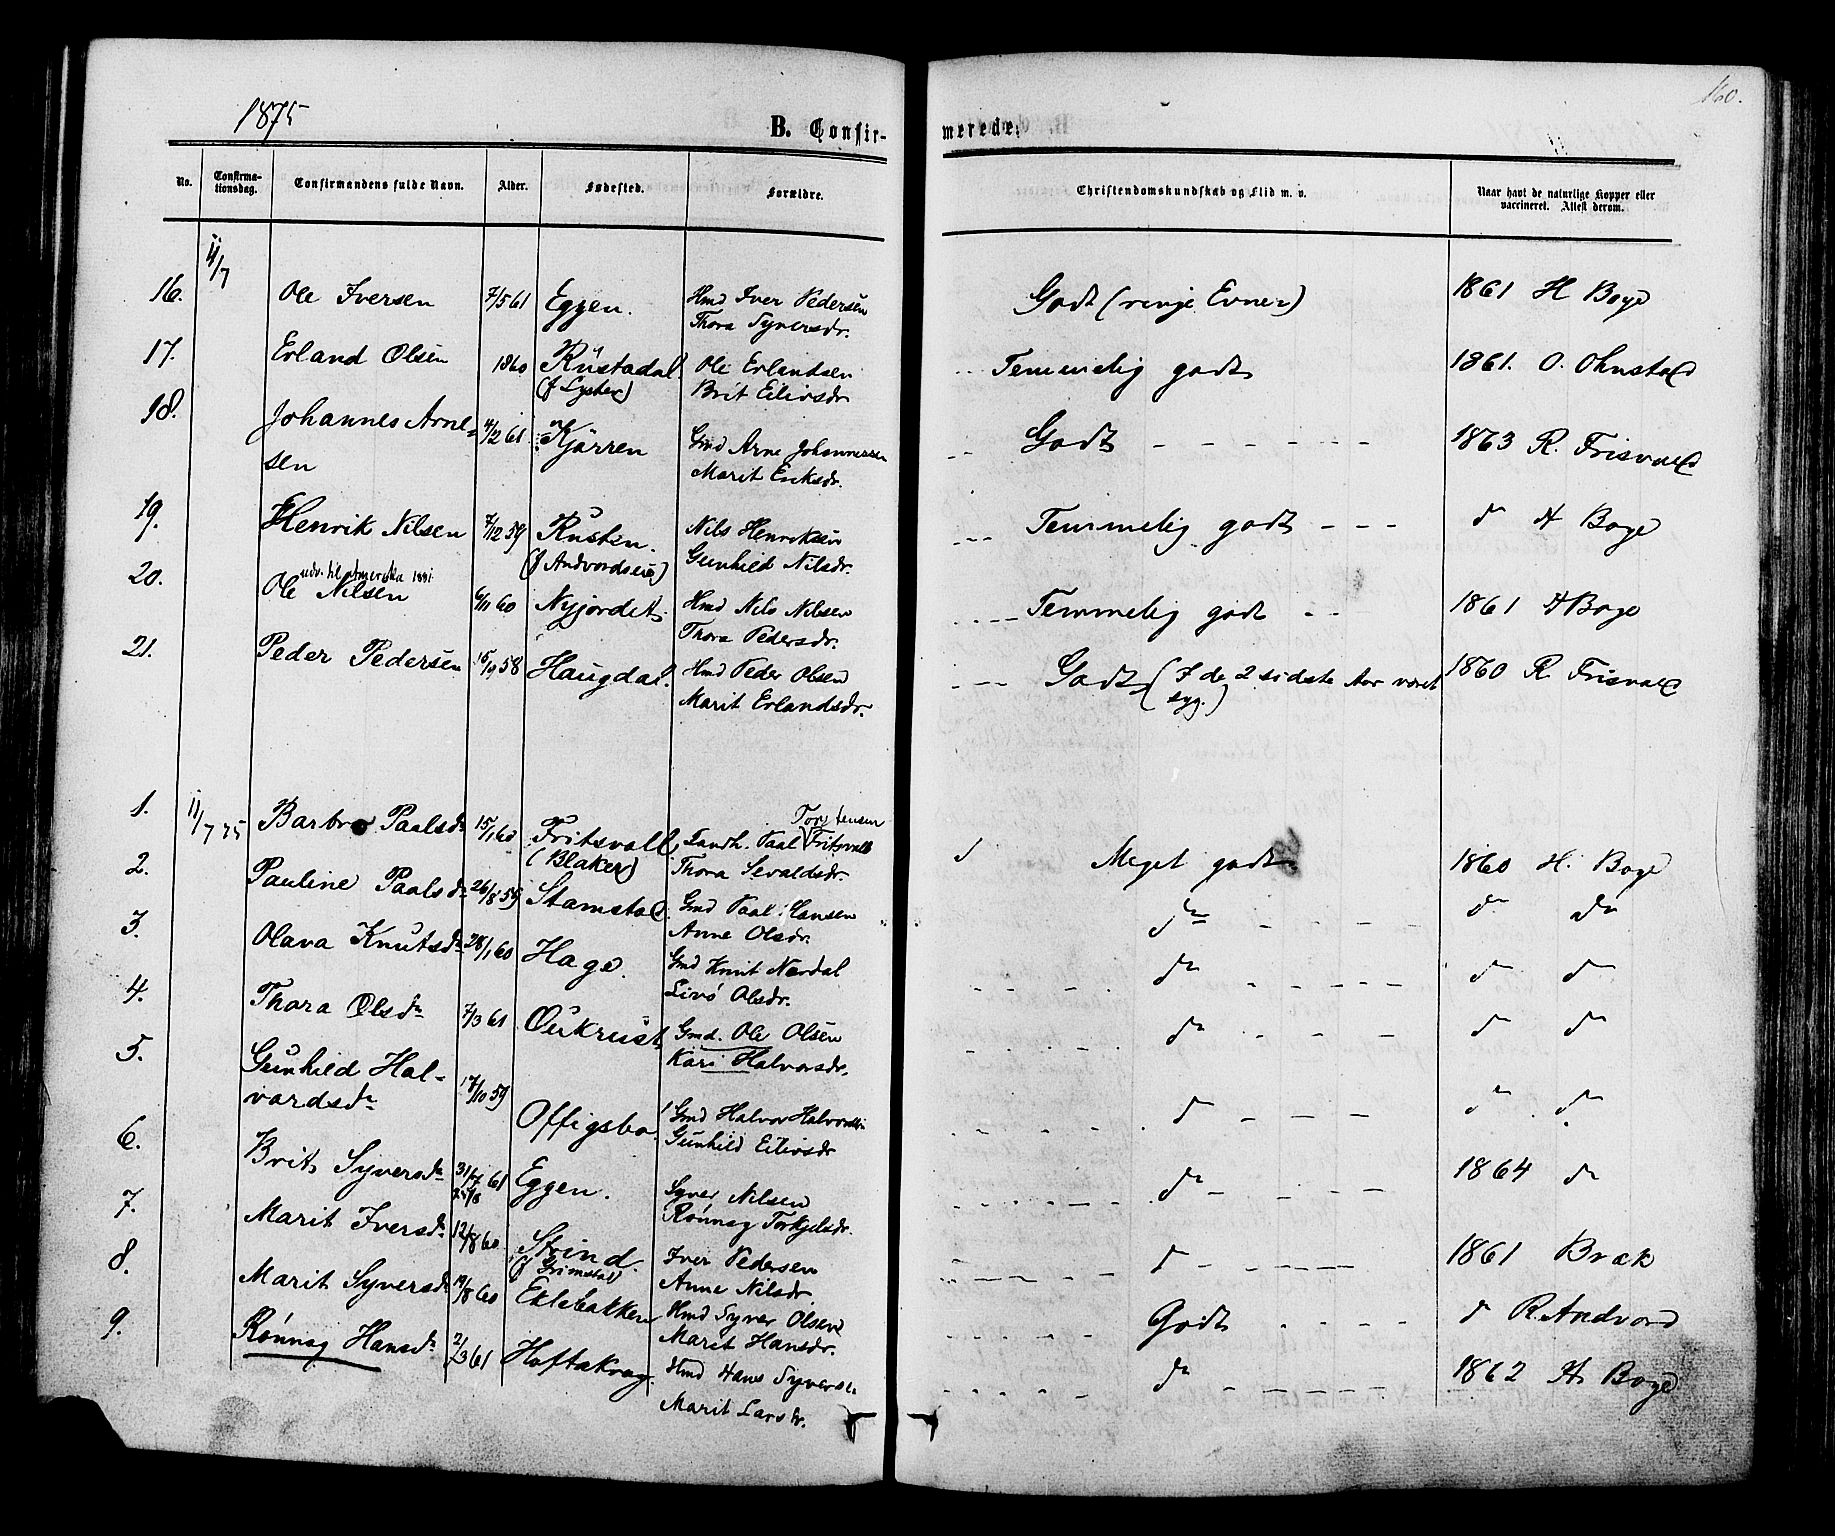 1875
160.
B. Confirmerede.
No. Confirmationsdag. Confirmandens fulde Navn. Alder. Fødested. Forældre. Christendomskundskab og Flid m. v. Naar havt de naturlige Kopper eller vaccineret. Attest derom.
11/7
16. Ole Iversen 7/5 61 Eggen. Hmd Iver Pedersen Godt (ringe Evner) 1861 H Boge
Thora Syversdr.
17. Erland Olsen 1860 Rustadal Ole Erlandsen Temmelig godt 1861. O. Ohnstad
(f Lyster) Brit Eilivsdr
18. Johannes Arne= 4/2 61 Kjørren Gmd Arne Johannessen Godt 1863 R. Frisvold
sen Marit Eriksdr.
19. Henrik Nilsen 7/12 59 Rusten. Nils Henriksen Temmelig godt do H Boge
(f Andvordseie) Gunhild Nilsdr.
udv. til Amerika 1881
20. Ole Nilsen 6/11 60 Nyjordet Hmd Nils Nilsen Temmelig godt 1861 H Boge
Thora Pedersdr.
21. Peder Pedersen 15/10 58 Haugdal. Hmd Peder Olsen Godt (I de 2 sidste Aar været 1860 R. Frisvold
Marit Erlandsdr. syg.)
1. 11/7 75 Barbro Paalsdr 15/1 60 Fritsvoll Gaardb. Paal Torstensen Fritsvold Meget godt 1860 H. Boge
(Blaker) Thora Sevaldsdr.
2. Pauline Paalsdr 26/8 59 Stamstad. Gmd Paal Hansen do do do
Anne Olsdr.
3. Olava Knutsdr 28/1 60 Hage. Gmd Knut Nordal do do do
Livø Olsdr.
4. Thora Olsdr 7/3 61 Øukrust Gmd. Ole Olsen do do do
Kari Halvorsdr.
5. Gunhild Hal- 17/10 59 Offigsbo. Gmd Halvor Halvorsen do do do
vardsdr Gunhild Eilivsdr
6. Brit Syversdr 31/7 61 Eggen. Syver Nilsen do 1864 do
25/8 Rønnog Torkjelsdr.
7. Marit Iversdr 12/8 60 Strind. Iver Pedersen do 1861 Bræk
(f Grimstad) Anne Nilsdr.
8. Marit Syversdr 19/8 60 Eklebakken Hmd Syver Olsen Godt do R. Andvord
Marit Hansdr.
9. Rønnog Hansdr 2/3 61 Hoftekrag. Hmd Hans Syversen do 1862 H. Boge
Marit Larsdr.